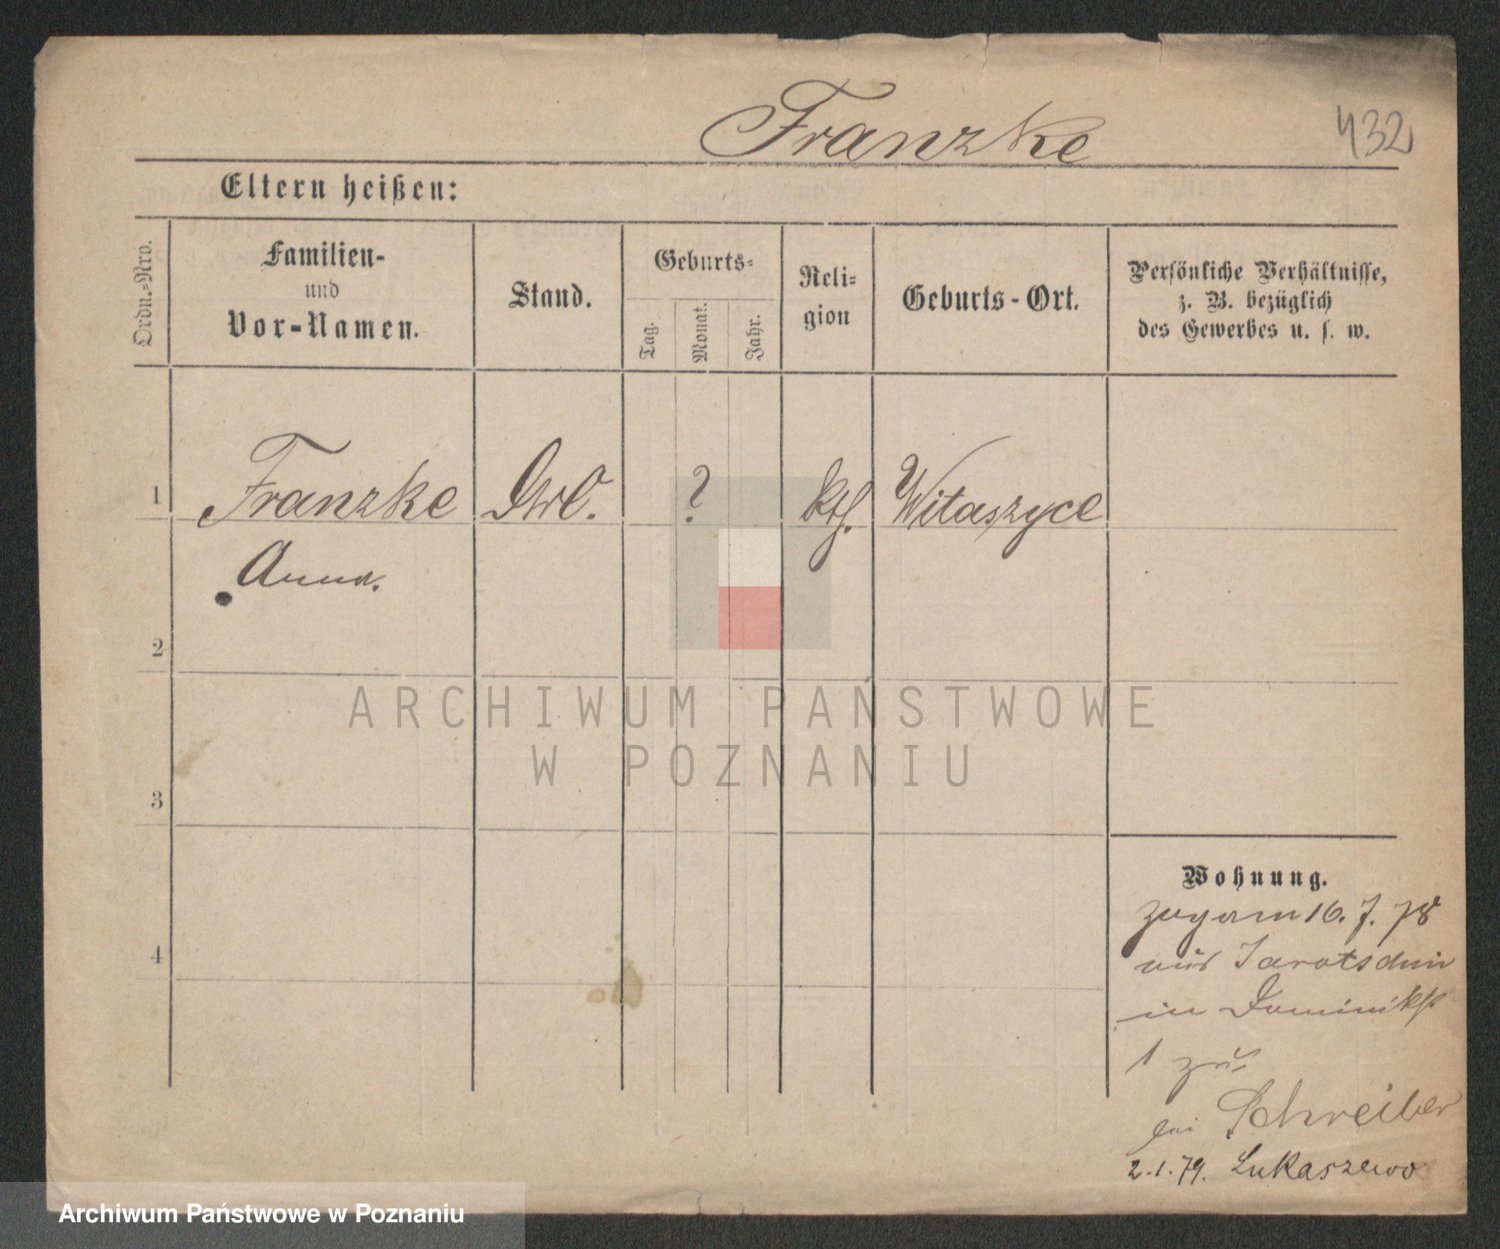 Franzke
432
Eltern heißen:
Ordn.-Nro.
Familien-
und
Vor-Namen.
Stand.
Geburts-
Tag.
Monat.
Jahr.
Reli-
gion
Geburts-Ort.
Persönliche Verhältnisse,
z. B. bezüglich
des Gewerbes u. s. w.
1
Franzke
?
kth.
Witaszyce
Anna.
2
ARCHIWUM PAŃSTWOWE
W POZNANIU
3
Wohnung.
16. 7. 78
4
aus Jarotschin
in Dominikst
1
bei Schreiber
2.1.79. Lukaszewo
Archiwum Państwowe w Poznaniu